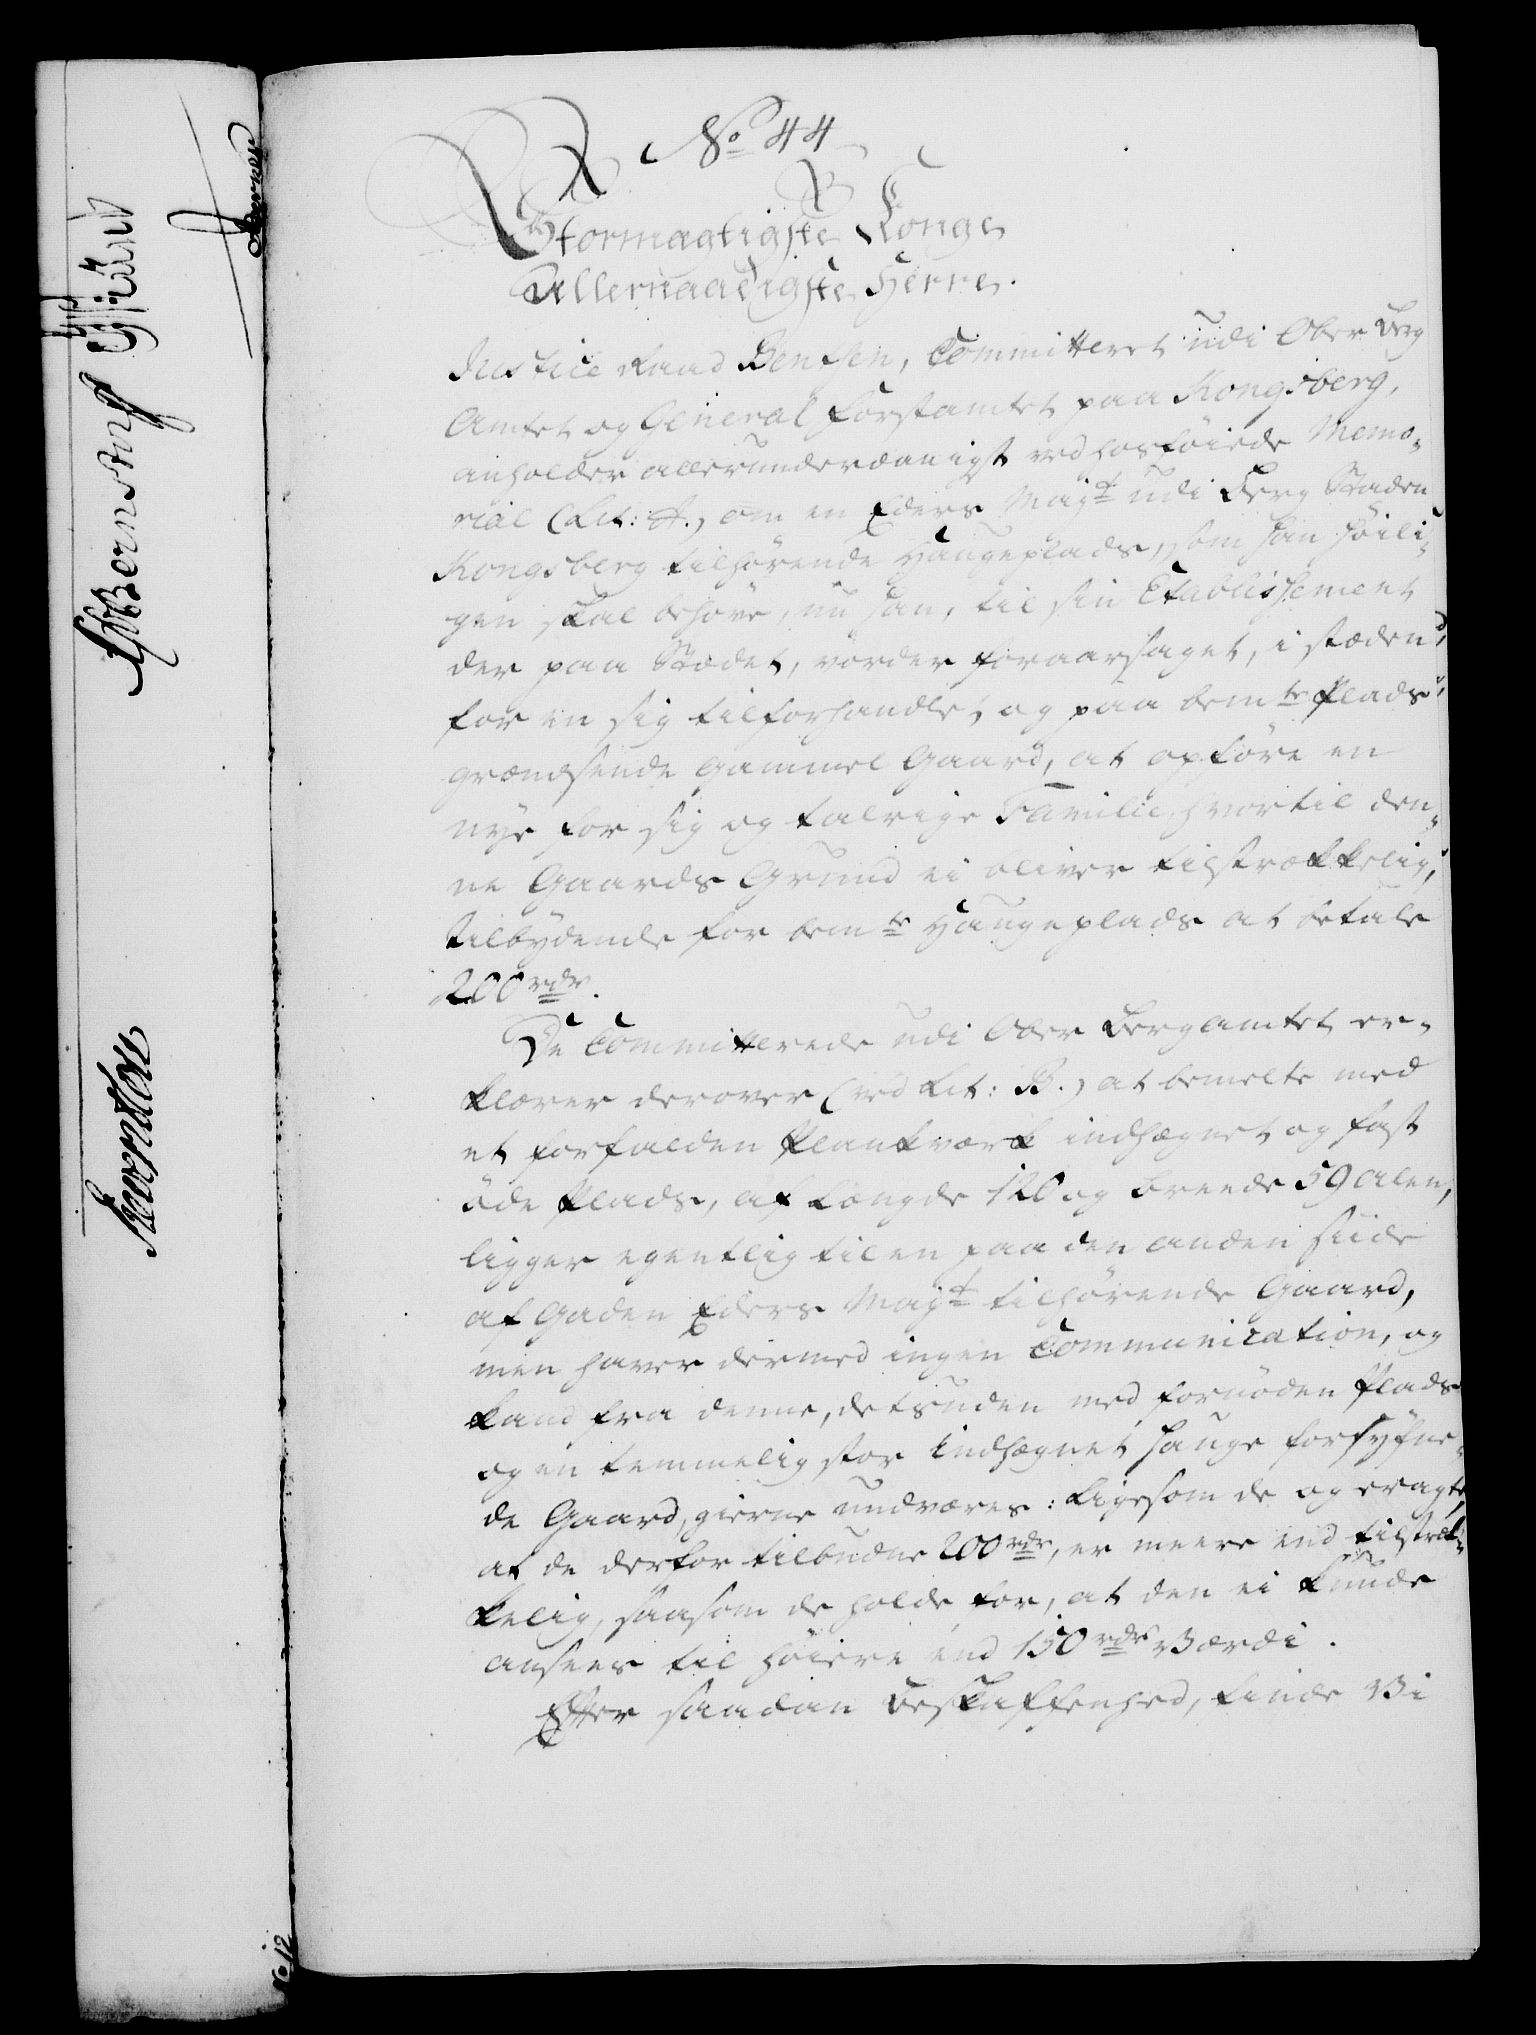 No 44
Stormægtigste Konge
Allernaadigste Herre.
Justice Raad Bentsen, Committeret udi Ober Berg
Amtet og General Forstamtet paa Kongsberg,
anholder allerunderdanigst ved hosføiede Memo-
rial (Lit: A.) om en Eders Mayt udi Berg Staden
Kongsberg tilhørende Haugeplads, som han höili-
gen skal behöve, nu han, til sin Etablissement
der paa Stædet, vorder foraarsaget, i stæden
for en sig tilforhandlet og paa bemte Plads
grændsende gammel Gaard, at opföre en
nye for sig og talrige Familie, hvortil den-
ne Gaards Grund ei bliver tilstrækkelig,
tilbydende for bemte Haugeplads at betale
200 rdr.
De Committerede udi Ober Bergamtet er-
klærer derover (ved Lit: B.) at bemelte med
et forfalden Plankværk indhægnet og fast
öde Plads, af Længde 120 og Breede 59 Alen,
ligger egentlig til en paa den anden Siide
af Gaden Eders Mayt tilhørende Gaard,
men haver dermed ingen Communication, og
kand fra denne, desuden med fornöden Plads
og en temmelig stor indhægnet Hauge forsyne-
de Gaard, gierne undværes: Ligesom de og eragte,
at de derfor tilbudne 200 rdr, er meere end tilstræk-
kelig, saasom de holde for, at den ei kunde
ansees til höiere end 150 rdrs Værdi.
Efter saadan Beskaffenhed, finde Vi